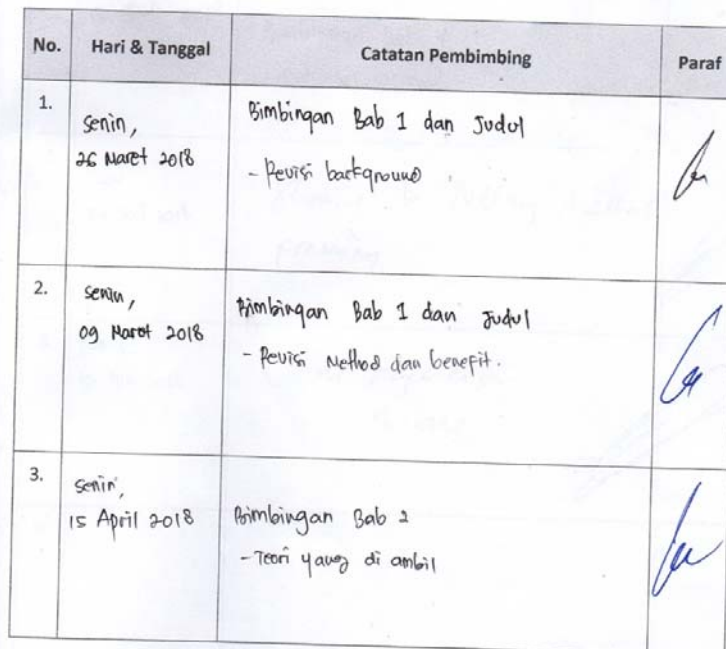 No. Hari & Tanggal Catatan Pembimbing Paraf
1.
Senin,
26 Maret 2018
Bimbingan Bab 1 dan Judul
- Revisi background
2.
Senin,
09 Maret 2018
Bimbingan Bab 1 dan Judul
- Revisi Method dan benefit.
3.
Senin,
15 April 2018
Bimbingan Bab 2
- Teori yang di ambil